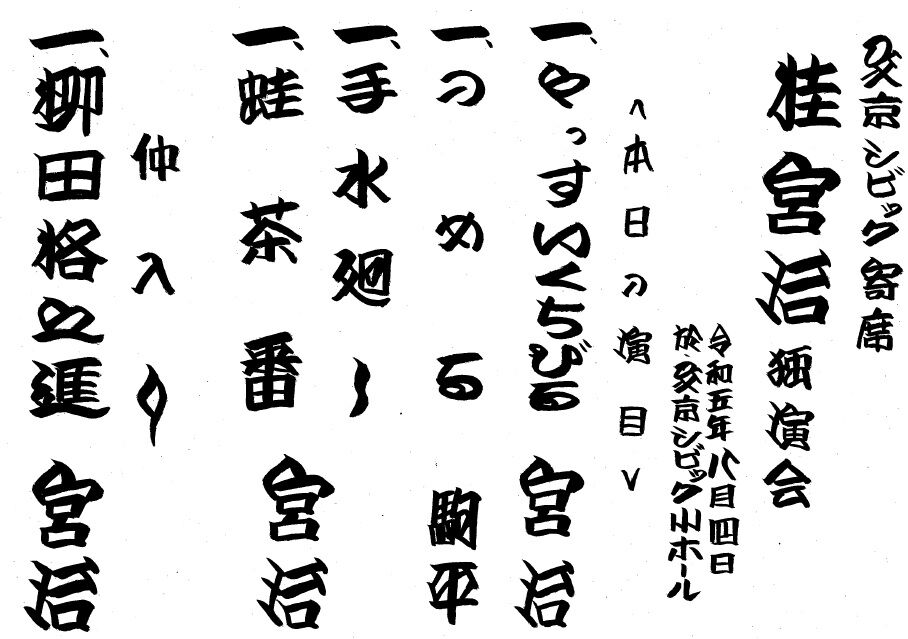 文京シビック寄席
桂宮治独演会
令和五年八月四日
於・文京シビック小ホール
<本日の演目>
一、やっすいくちびる 宮治
一、つめる 駒平
一、手水廻し
一、蛙茶番 宮治
仲入り
一、柳田格之進 宮治